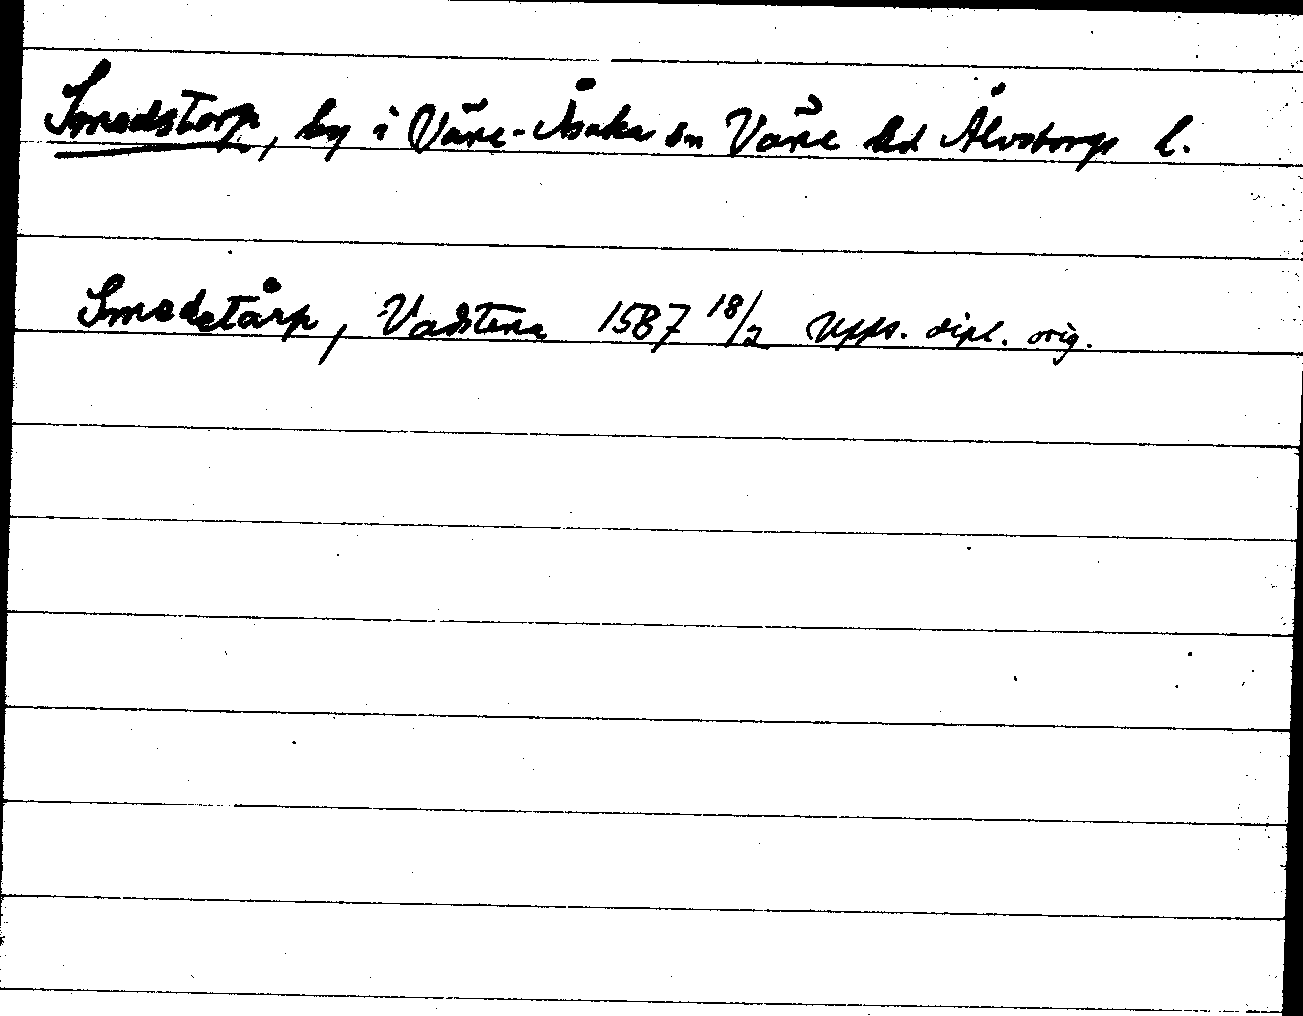 Smedstorp, by i Väne-Åsaka sn Väne hd Älvsborgs l.
Smedztårp, Vadstena 1587 18/2 Upps. dipl. orig.